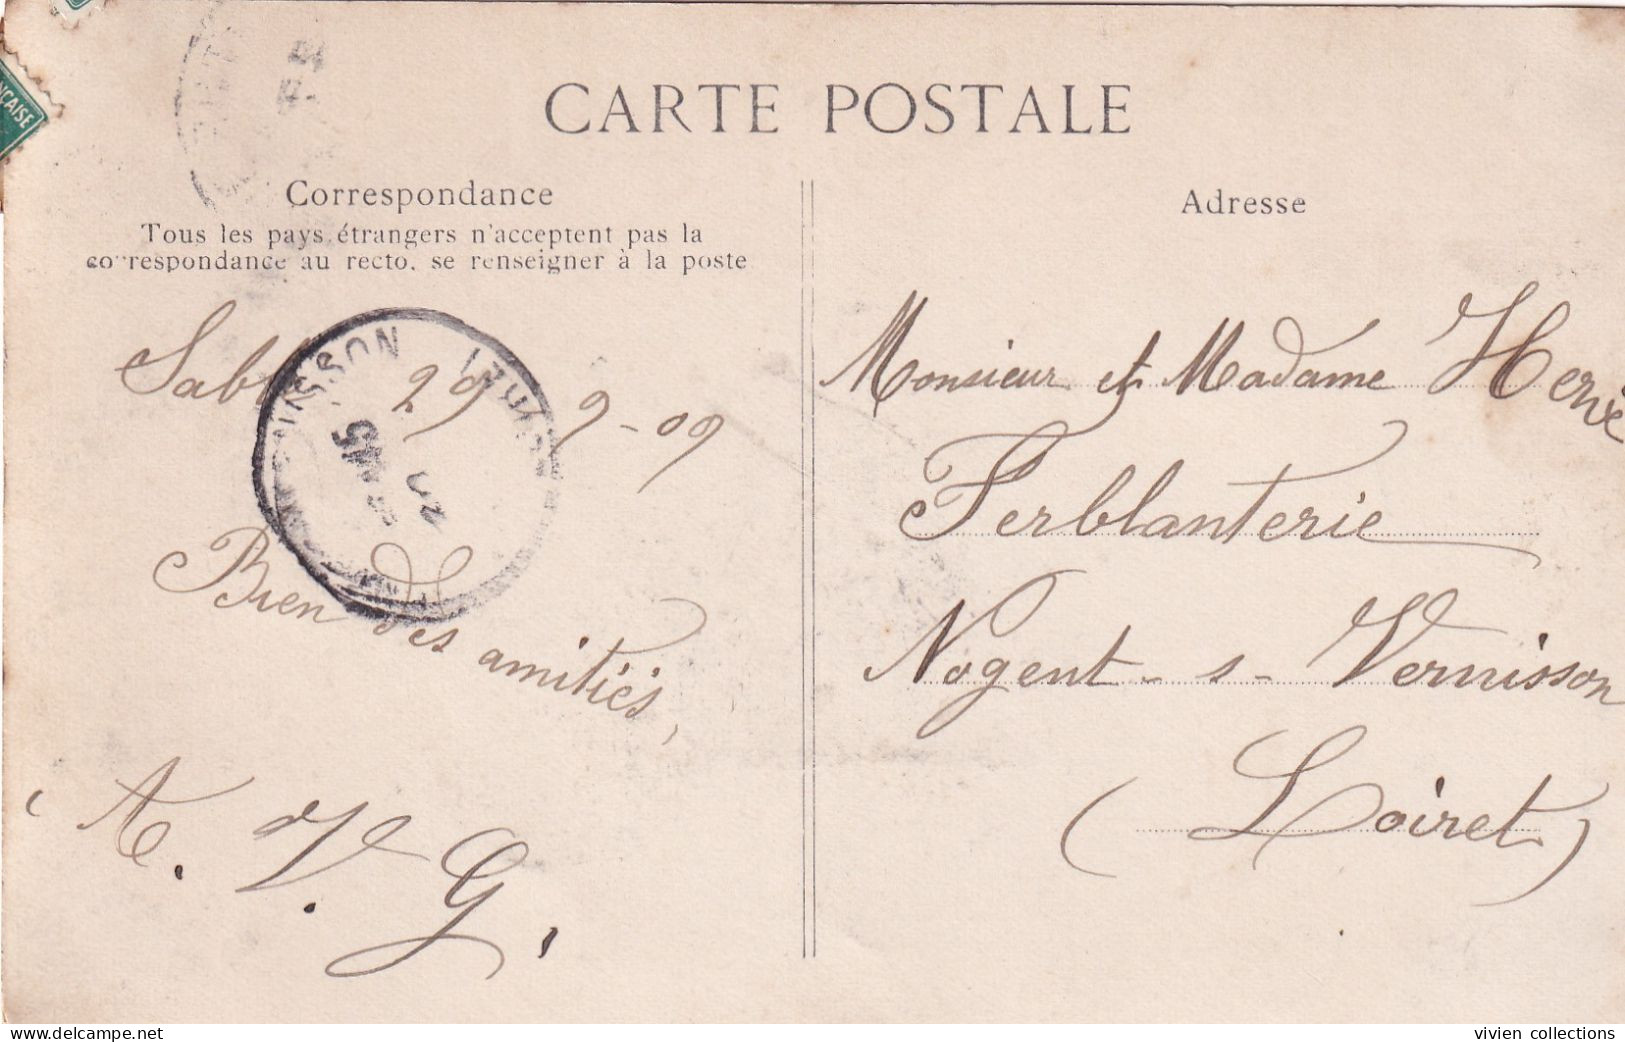 CARTE POSTALE
Correspondance
Tous les pays étrangers n'acceptent pas la
correspondance au recto, se renseigner à la poste
29 9-09
Bien des amitiés,
A. V. G.
Adresse
Monsieur et Madame Hervé
Ferblanterie
Nogent-s-Vernisson
(Loiret)
ÇAISE
vivien collections